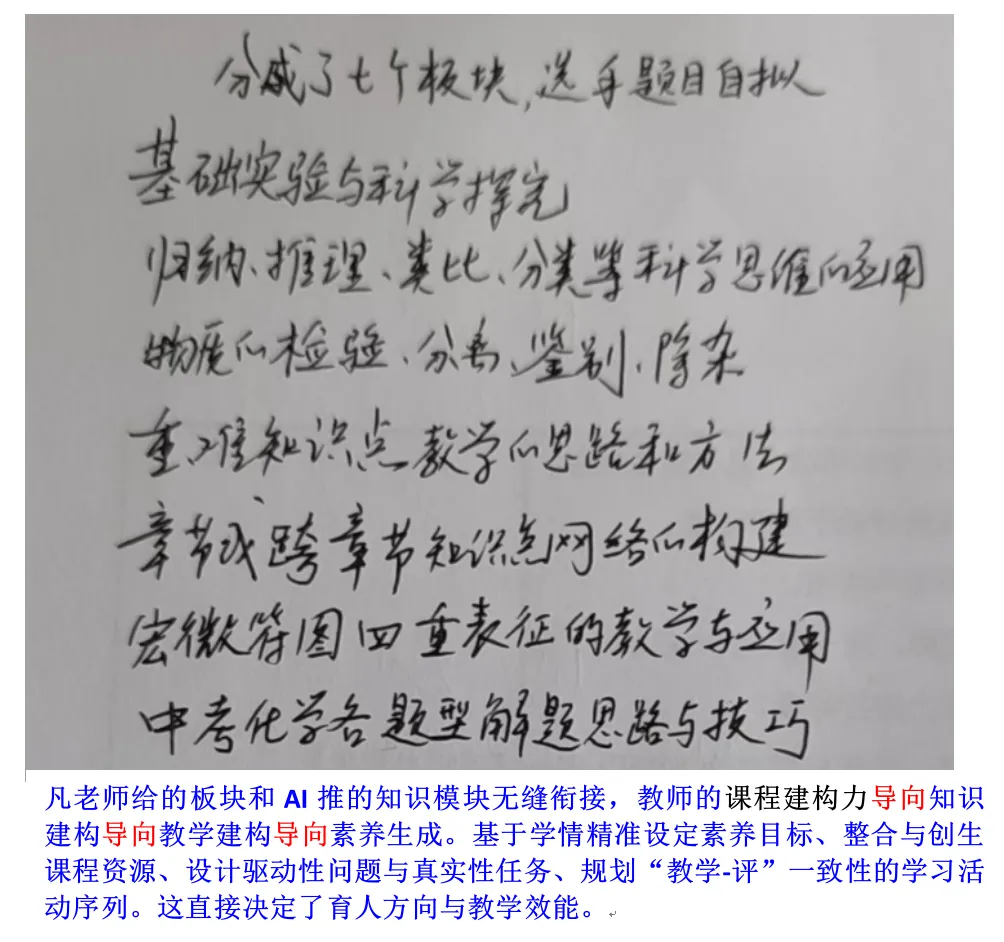 分成了七个板块,选手题目自拟
基础实验与科学探究
归纳、推理、类比、分类等科学思维的应用
物质的检验、分离、鉴别、除杂
重、难知识点教学的思路和方法
章节或跨章节知识点网络的构建
宏微符图四重表征的教学与应用
中考化学各题型解题思路与技巧
凡老师给的板块和 AI 推的知识模块无缝衔接，教师的课程建构力导向知识
建构导向教学建构导向素养生成。基于学情精准设定素养目标、整合与创生
课程资源、设计驱动性问题与真实性任务、规划“教学-评”一致性的学习活
动序列。这直接决定了育人方向与教学效能。